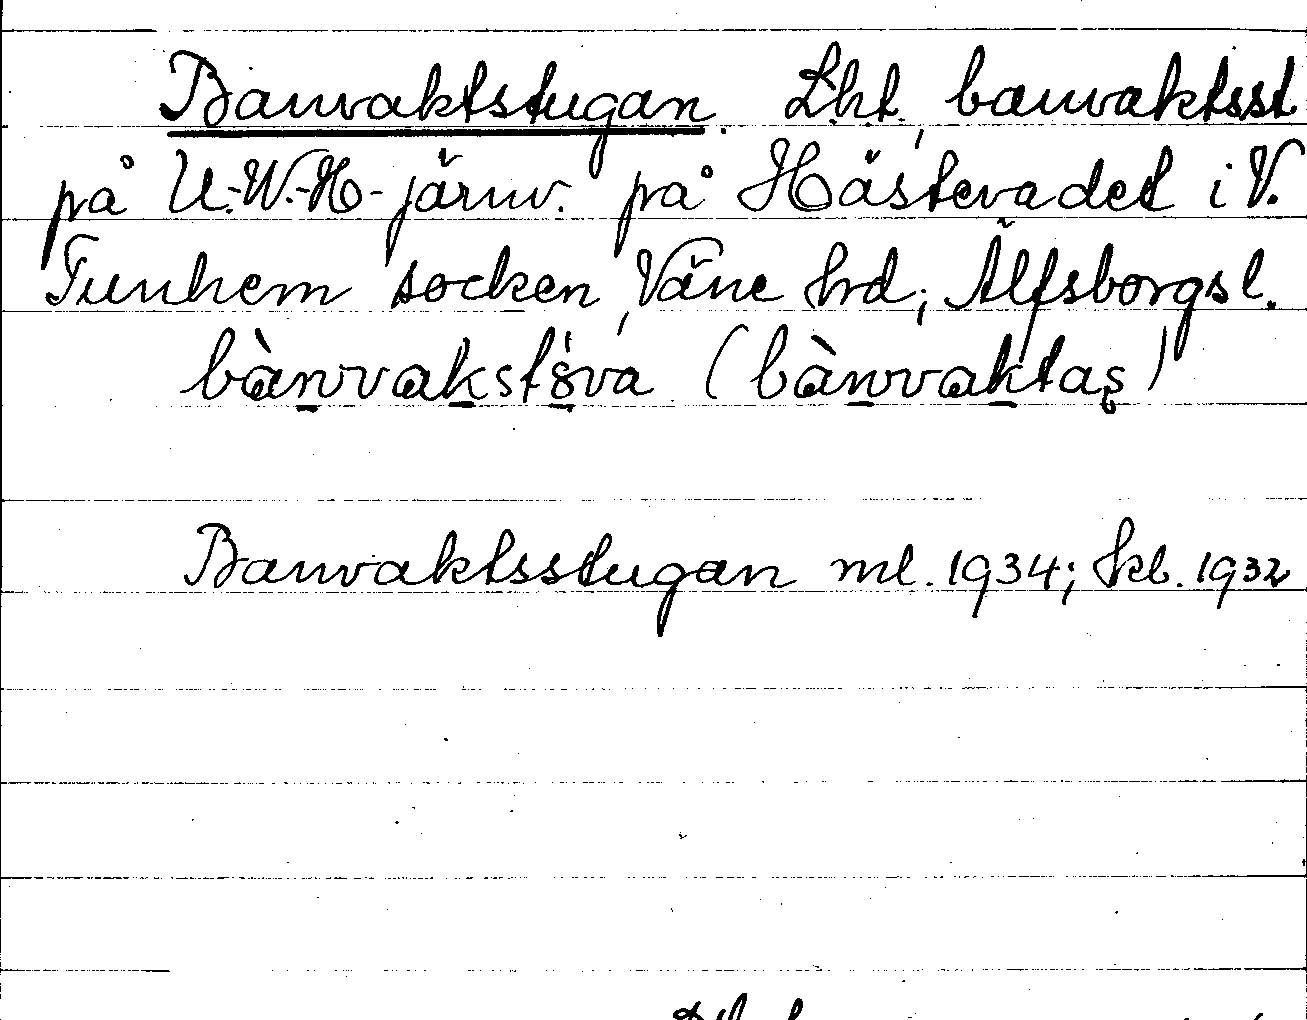 Banvaktstugan. Lht, banvaktsst
på U.-W.-H-järnv. på Hästevadet i V.
Tunhem socken, Väne hrd; Älfsborgs l.
bànvakstöva (bànvaktas)
Banvaktsstugan ml. 1934; kb. 1932